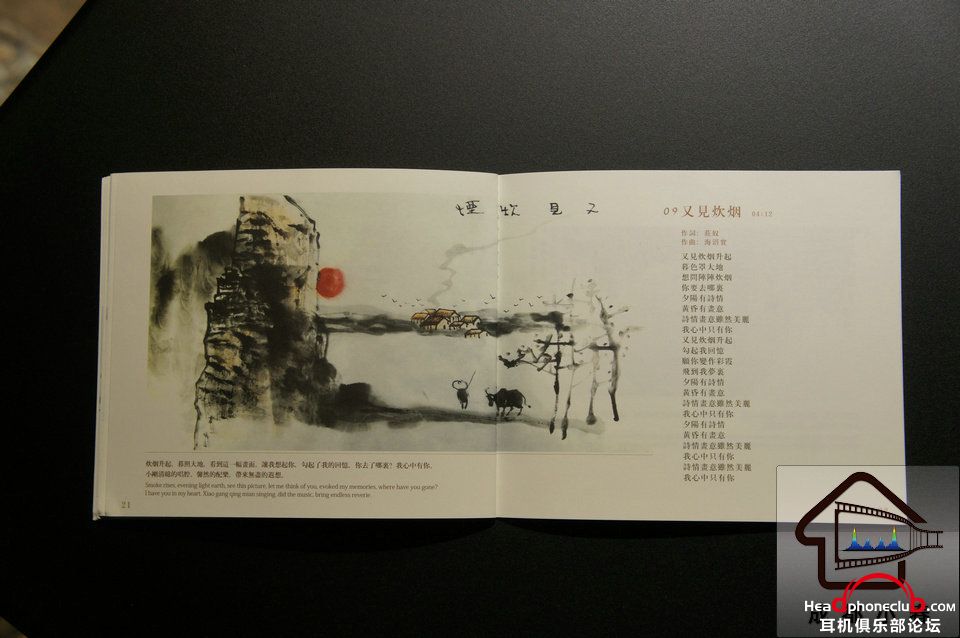 又見炊煙
炊烟升起，暮照大地，看到這一幅畫面，讓我想起你，勾起了我的回憶，你去了哪裏？我心中有你。
小剛清綿的唱腔，馨然的配樂，帶來無盡的遐想。
Smoke rises, evening light earth, see this picture, let me think of you, evoked my memories, where have you gone?
I have you in my heart. Xiao gang qing mian singing, did the music, bring endless reverie.
21
09 又見炊烟 04:12
作詞：莊奴
作曲：海沼實
又見炊烟升起
暮色罩大地
想問陣陣炊烟
你要去哪裏
夕陽有詩情
黃昏有畫意
詩情畫意雖然美麗
我心中只有你
又見炊烟升起
勾起我回憶
願你變作彩霞
飛到我夢裏
夕陽有詩情
黃昏有畫意
詩情畫意雖然美麗
我心中只有你
夕陽有詩情
黃昏有畫意
詩情畫意雖然美麗
我心中只有你
詩情畫意雖然美麗
我心中只有你
Headphoneclub.com
耳机俱乐部论坛